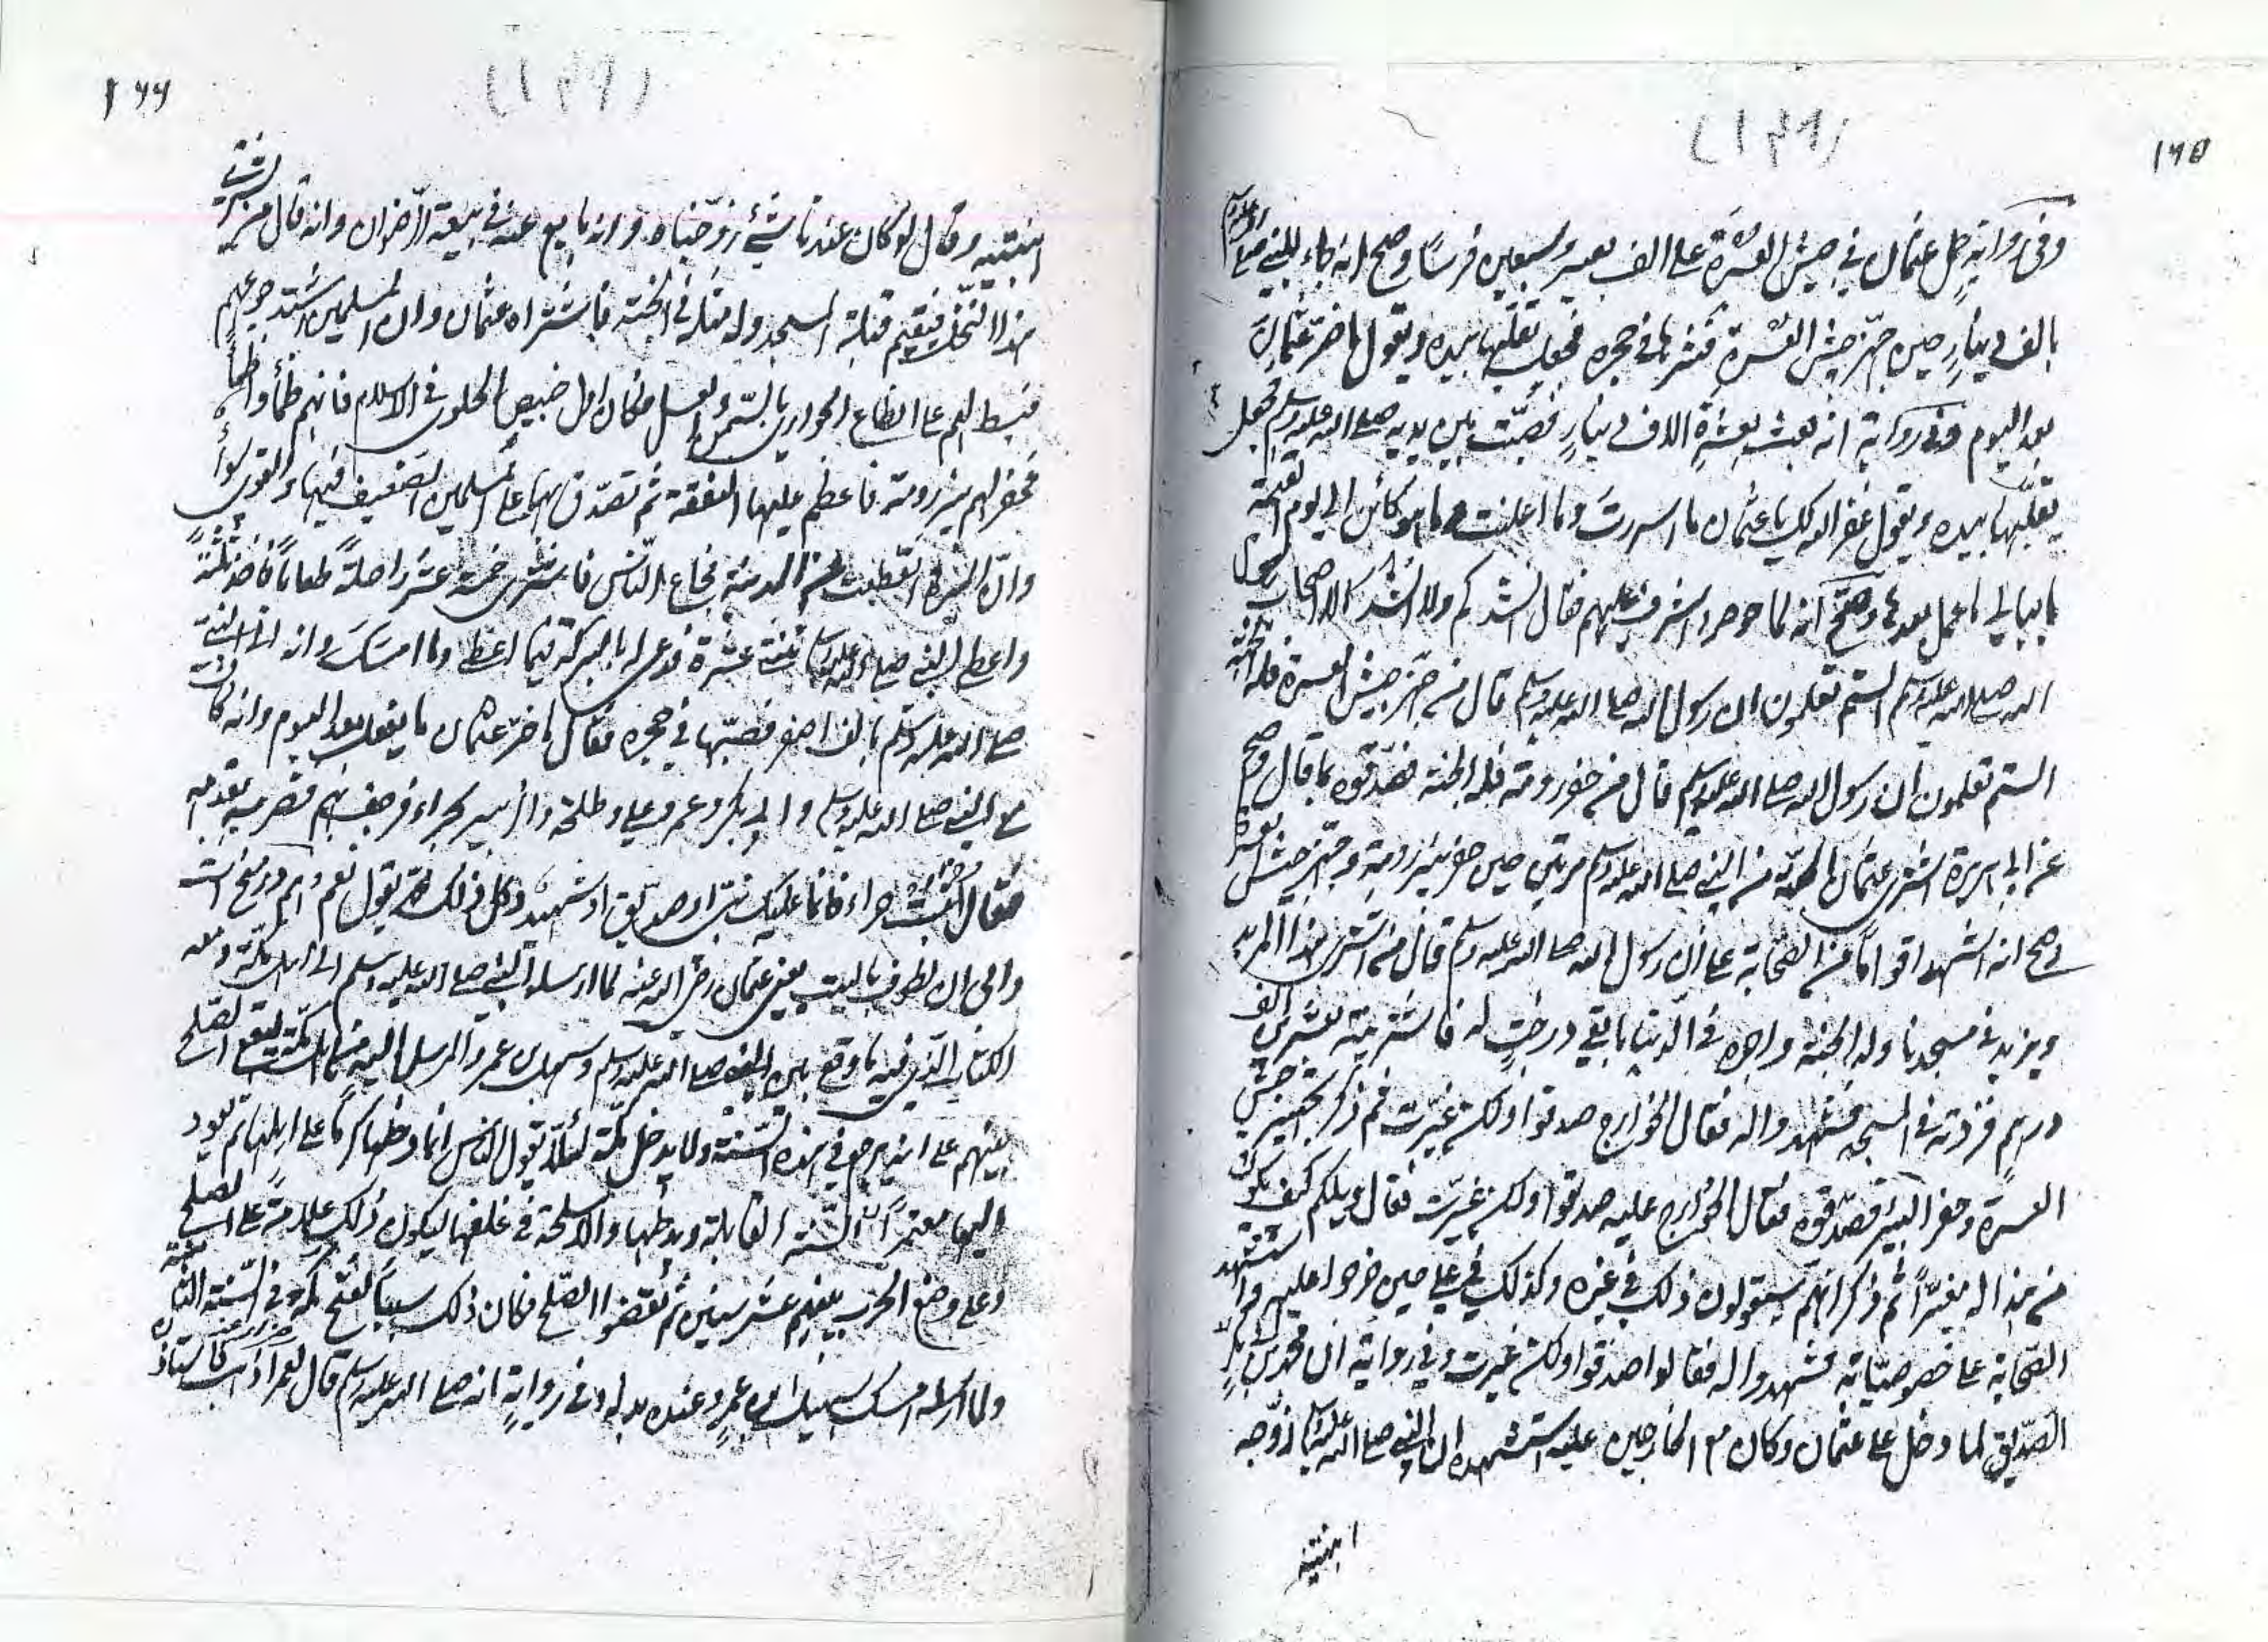 ١٦٥
(١٤٩)
وفى رواية حمل عثمان في جيش العسرة على الف بعير وسبعين فرسا وصح انه جاء للنبي صلى الله عليه وسلم
بالف دينار حين جهز جيش العسرة فنثرها في حجره فجعل يقلبها بيده ويقول ما ضر عثمان
بعد اليوم وفى رواية انه بعث بعشرة الاف دينار فصبت بين يديه صلى الله عليه وسلم فجعل
يقلبها بيده ويقول غفر الله لك يا عثمان ما اسررت وما اعلنت وما هو كائن الى يوم القيمة
ما يبالي ما عمل بعدها وصح انه لما حوصر اشرف عليهم فقال انشدكم ولا انشد الا اصحاب رسول
الله صلى الله عليه وسلم الستم تعلمون ان رسول الله صلى الله عليه وسلم قال من جهز جيش العسرة فله الجنة
الستم تعلمون ان رسول الله صلى الله عليه وسلم قال من حفر رومة فله الجنة فصدقوه بما قال وصح
عن ابي هريرة اشترى عثمان الجنة من النبي صلى الله عليه وسلم مرتين حين حفر بئر رومة وجهز جيش العسرة
وصح انه استشهد اقواما من الصحابة على ان رسول الله صلى الله عليه وسلم قال من اشترى هذا المربد
ويزيد في مسجدنا وله الجنة واجره في الدنيا ما بقي درجات له فاشتريته بعشرين الف
درهم فزدته في المسجد فشهدوا له فقال الخوارج صدقوا ولكن غيرت ثم ذكر تجهيز جيش
العسرة وحفر البئر فصدقوه فقال الخوارج عليه صدقوا ولكن غيرت فقال ويلكم كيف يكون
من هذا له مغيرا ثم ذكر انهم سيقولون ذلك في غيره وكذلك في علي حين خرجوا عليه واستشهد
الصحابة على خصوصياته فشهدوا له فقالوا صدقوا ولكن غيرت وفي رواية ان محمد بن ابي بكر
الصديق لما دخل على عثمان وكان مع الخارجين عليه استشهده ان النبي صلى الله عليه وسلم زوجه
ابنتيه
١٦٦
(١٤٩)
ابنتيه وقال لو كان عندنا شيء زوجناه وانه بايع عنه في بيعة الرضوان وانه قال من يشتري
هذا النخل فيقيم قبلة المسجد وله مثله في الجنة فاشتراه عثمان وان المسلمين اشتد جوعهم
فبسط لهم على انطاع الحواري بالسمن والعسل فكان اول خبيص الحلوى في الاسلام فانهم ظمأوا ظمأ
فحفر لهم بئر رومة فاعظم عليها النفقة ثم تصدق بها على المسلمين الضعيف فيها والقوي سواء
وان الميرة انقطعت عن المدينة فجاع الناس فاشترى خمسة عشر راحلة طعاما فاخذ ثلثة
واعطى النبي صلى الله عليه وسلم ثنتي عشرة فدعى له بالبركة فيما اعطى وما امسك وانه اتى النبي
صلى الله عليه وسلم بالف اصفر فصبها في حجره فقال ما ضر عثمان ما يفعل بعد اليوم وانه كان
مع النبي صلى الله عليه وسلم وابي بكر وعمر وعلي وطلحة والزبير بحراء فرجف بهم فضربه بقدمه
فقال اثبت حراء فانما عليك نبي او صديق او شهيد وكل ذلك يقول نعم
وابى ان يطوف بالبيت يعني عثمان رضي الله عنه لما ارسله النبي صلى الله عليه وسلم الى اهل مكة ومعه
الكتاب الذي فيه ما وقع بين النبي صلى الله عليه وسلم وسهيل بن عمرو المرسل اليه من اهل مكة ليقع الصلح
بينهم على انه يرجع في هذه السنة ولا يدخل مكة لئلا يقول الناس انما دخلها كرها على اهلها ثم يعود
اليها معتمرا السنة القابلة ويدخلها والاسلحة في غلفها ليكون ذلك علامة على الصلح
وعلى وضع الحرب بينهم عشر سنين ثم نقضوا الصلح فكان ذلك سببا لفتح مكة في السنة الثامنة
ولما ارسله امسك سهيل ابن عمرو عنده بدله وفي رواية انه صلى الله عليه وسلم قال لعمر